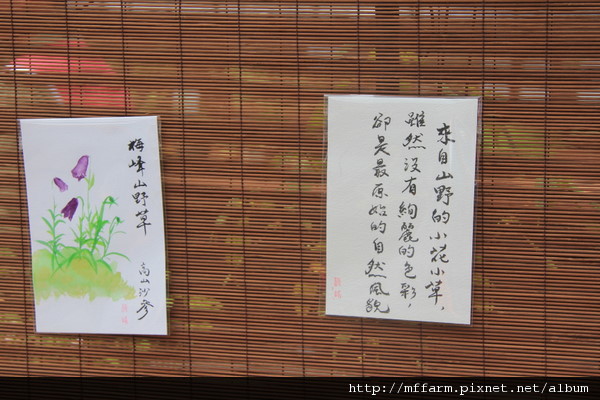 梅峰山野草
高山沙參
來自山野的小花小草，
雖然沒有絢麗的色彩，
卻是最原始的自然風貌
http://mffarm.pixnet.net/album